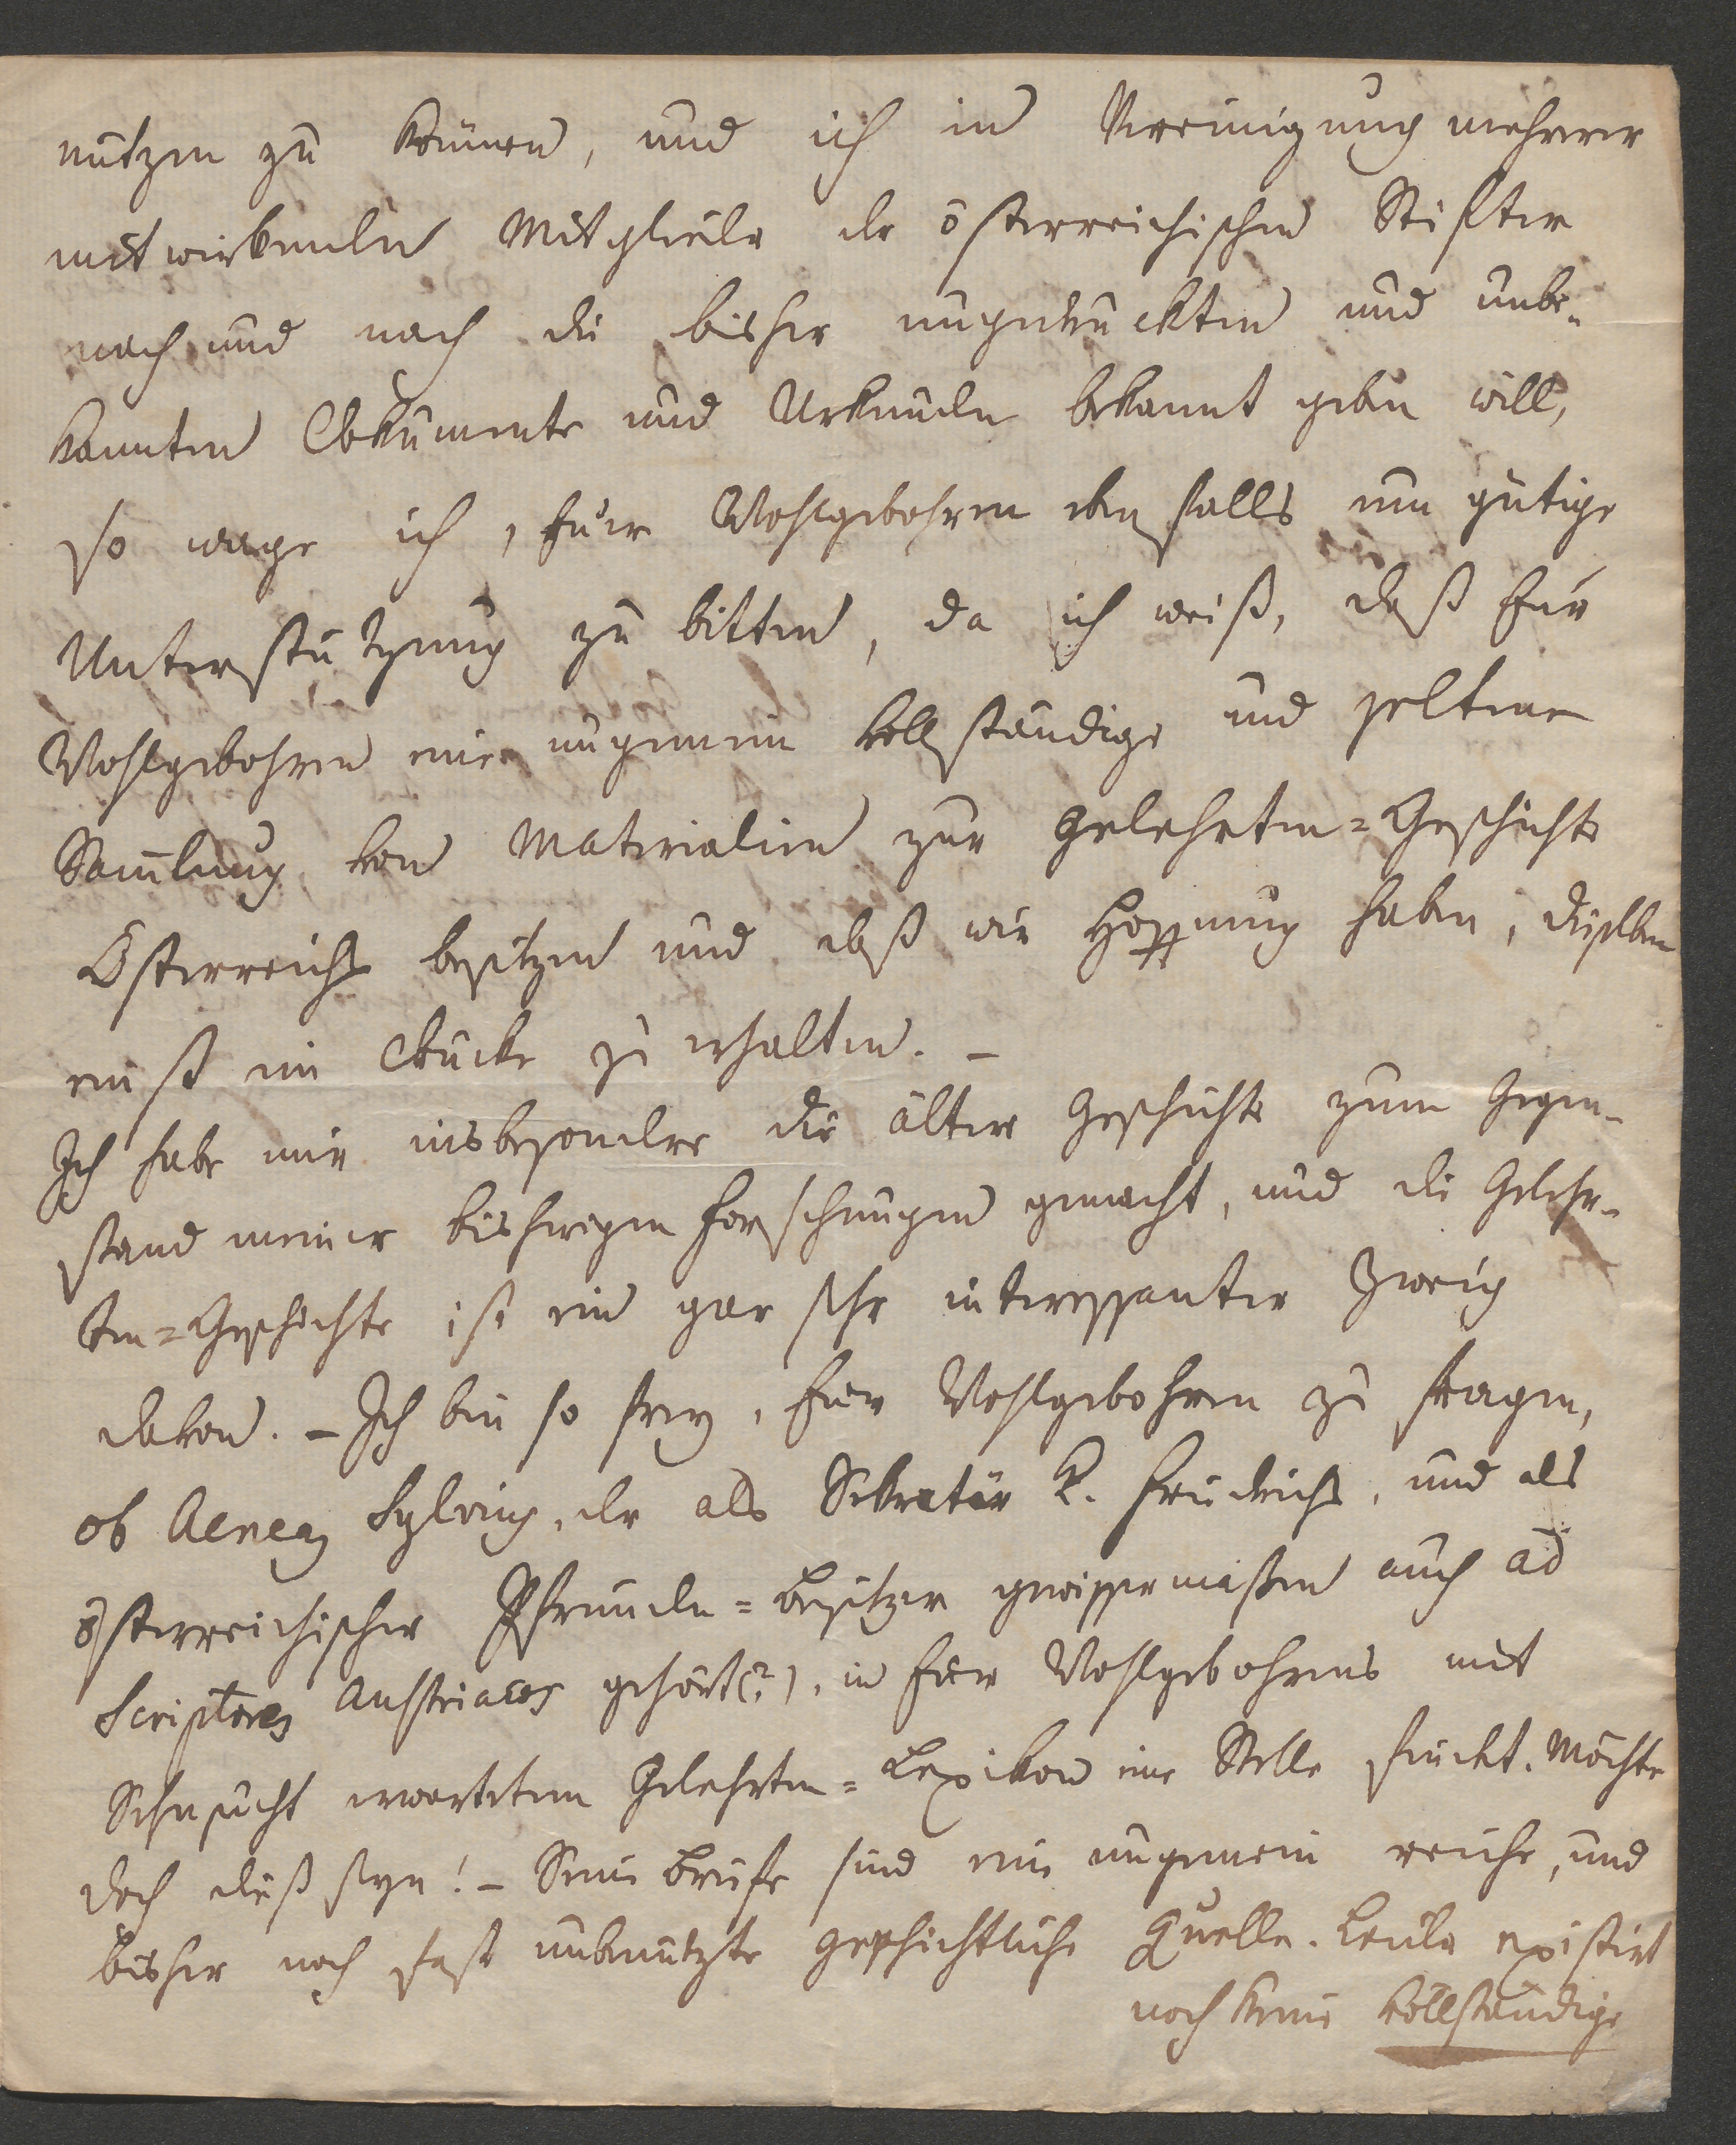 nützen zu können, und ich in Vereinigung mehrerer
mitwirkender Mitglieder der österreichischen Stifter
nach und nach die bisher ungedruckten und unbe-
kannten Dokumente und Urkunden bekannt geben will,
so wage ich, Euer Wohlgebohren ebenfalls um gütige
Unterstützung zu bitten, da ich weiß, daß Euer
Wohlgebohren eine ungemein vollständige und seltene
Sammlung von Materialien zur Gelehrten-Geschichte
Österreichs besitzen und daß wir Hoffnung haben, dieselben
einst im Drucke zu erhalten. –
Ich habe mir insbesondere die ältere Geschichte zum Gegen-
stand meiner bisherigen Forschungen gemacht, und die Gelehr-
ten-Geschichte ist ein gar sehr interessanter Zweig
davon. – Ich bin so frey, Euer Wohlgebohren zu fragen,
ob Aeneas Sylvius, der als Sekretär K. Friedrichs, und als
österreichischer Pfründen-Besitzer gewissermaßen auch ad
Scriptores Austriacos gehört(?), in Euer Wohlgebohrens mit
Sehnsucht erwarteten Gelehrten-Lexikon eine Stelle findet. Möchte
doch dieß seyn! – Seine Briefe sind eine ungemein reiche, und
bisher noch fast unbenützte geschichtliche Quelle. Leider existirt
noch keine vollständige